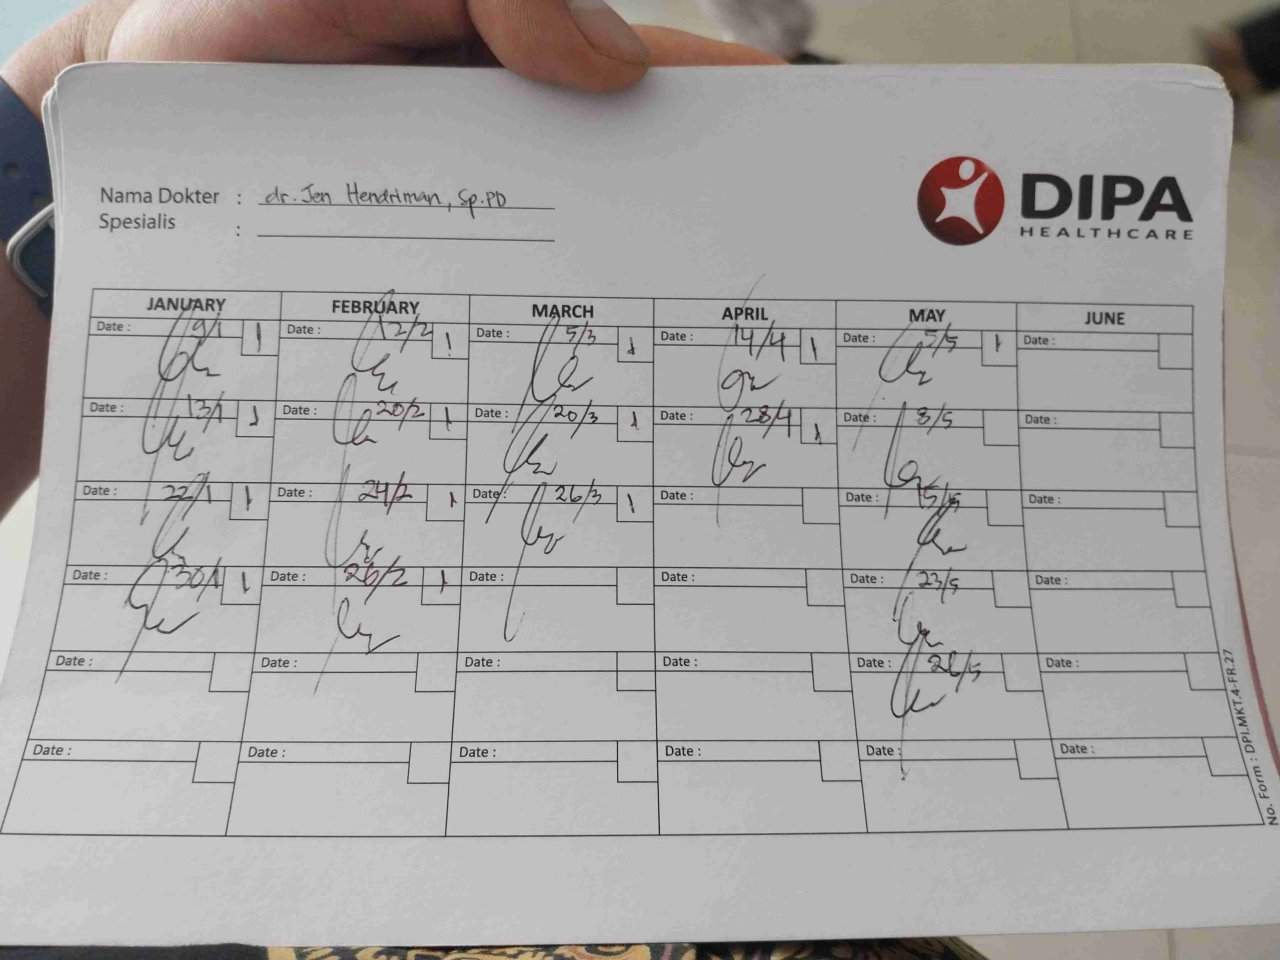 Nama Dokter : dr. Jen Hendriman, Sp.PD
Spesialis :
DIPA
HEALTHCARE
JANUARY FEBRUARY MARCH APRIL MAY JUNE
Date : 9/1 1 Date : 12/2 1 Date : 5/3 1 Date : 14/4 1 Date : 5/5 1 Date :
Date : 13/1 1 Date : 20/2 1 Date : 20/3 1 Date : 28/4 1 Date : 8/5 Date :
Date : 22/1 1 Date : 24/2 1 Date : 26/3 1 Date : Date : 15/5 Date :
Date : 30/1 1 Date : 26/2 1 Date : Date : Date : 23/5 Date :
Date : Date : Date : Date : Date : 26/5 Date :
Date : Date : Date : Date : Date : Date :
No. Form : DPI.MKT.4-FR.27